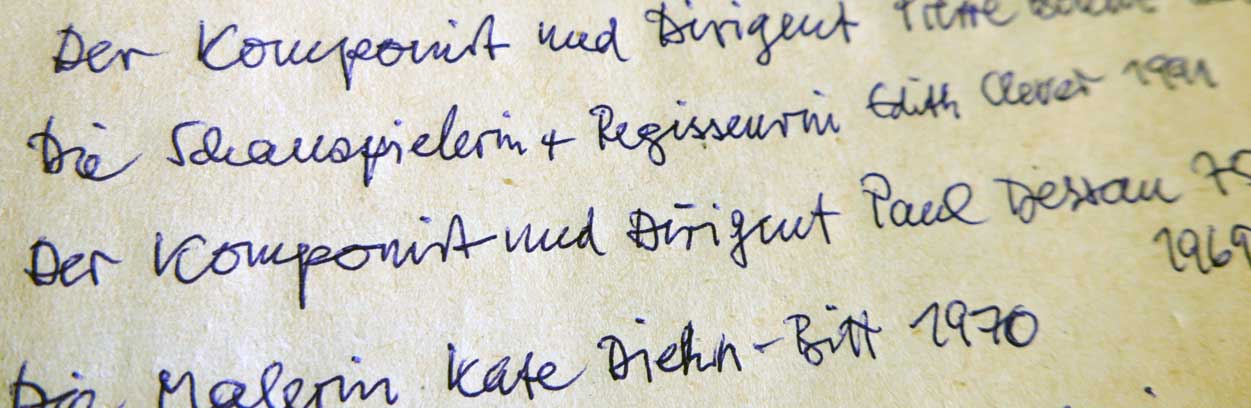 Der Komponist und Dirigent Pierre
Die Schauspielerin + Regisseurin Edith Clever 1991
Der Komponist und Dirigent Paul Dessau
1969
Die Malerin Kate Diehn-Bitt 1970